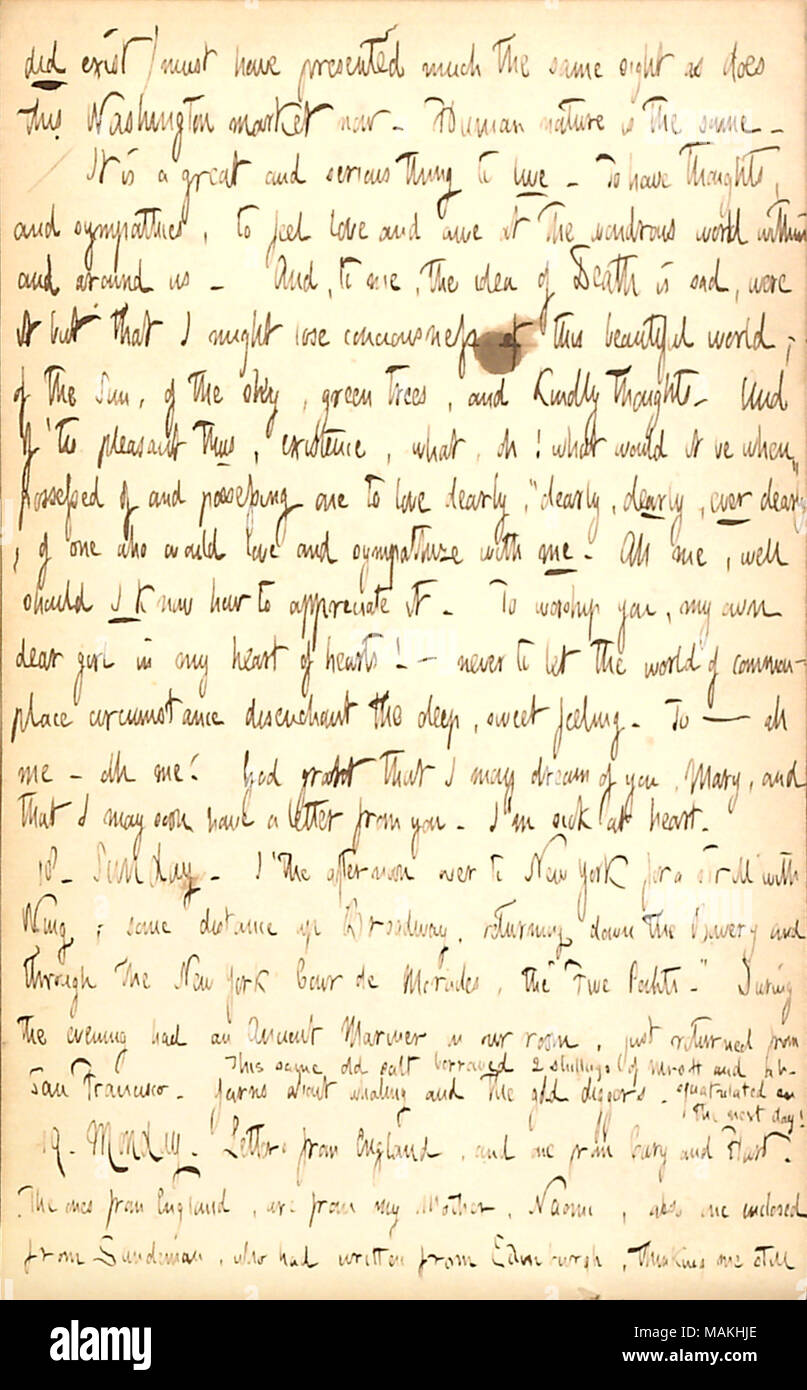 did exist) must have presented much the same sight as does
this Washington market now - Human nature is the same -
It is a great and serious thing to live - To have thoughts,
and sympathies, to feel love and awe at the wondrous world within
and around us - And, to me, the idea of Death is sad, were
it but that I might lose conciousness of this beautiful world, -
of the Sun, of the sky, green trees, and Kindly thoughts - And
if 'tis pleasant thus, existence, what, oh! what would it be when
possessed of and possessing one to love dearly, "dearly, dearly, ever dearly"
, of one who would love and sympathize with me - Ah me, well
should I know how to appreciate it - To worship you, my own
dear girl in my heart of hearts! - never to let the world of common-
place circumstance disenchant the deep, sweet feeling - To — ah
me - oh me! God grant that I may dream of you, Mary, and
that I may soon have a letter from you - I'm sick at heart.
18 - Sunday - I' the afternoon over to New York for a stroll with
Wing, some distance up Broadway, returning down the Bowery and
through the New York Cour de Miracles, the "Five Points -" During
the evening had an Ancient Mariner in our room, just returned from
San Francisco - Yarns about whaling and the gold diggers -
This same old salt borrowed 2 shillings of and ab-
squatulated on
the next day!
19 - Monday - Letters from England, and one from Cary and Hart -
The ones from England, are from my Mother, Naomi, also one enclosed
from Sandeman, who had written from Edinburgh, thinking me still
alamy
Image ID: MAKHJE
www.alamy.com